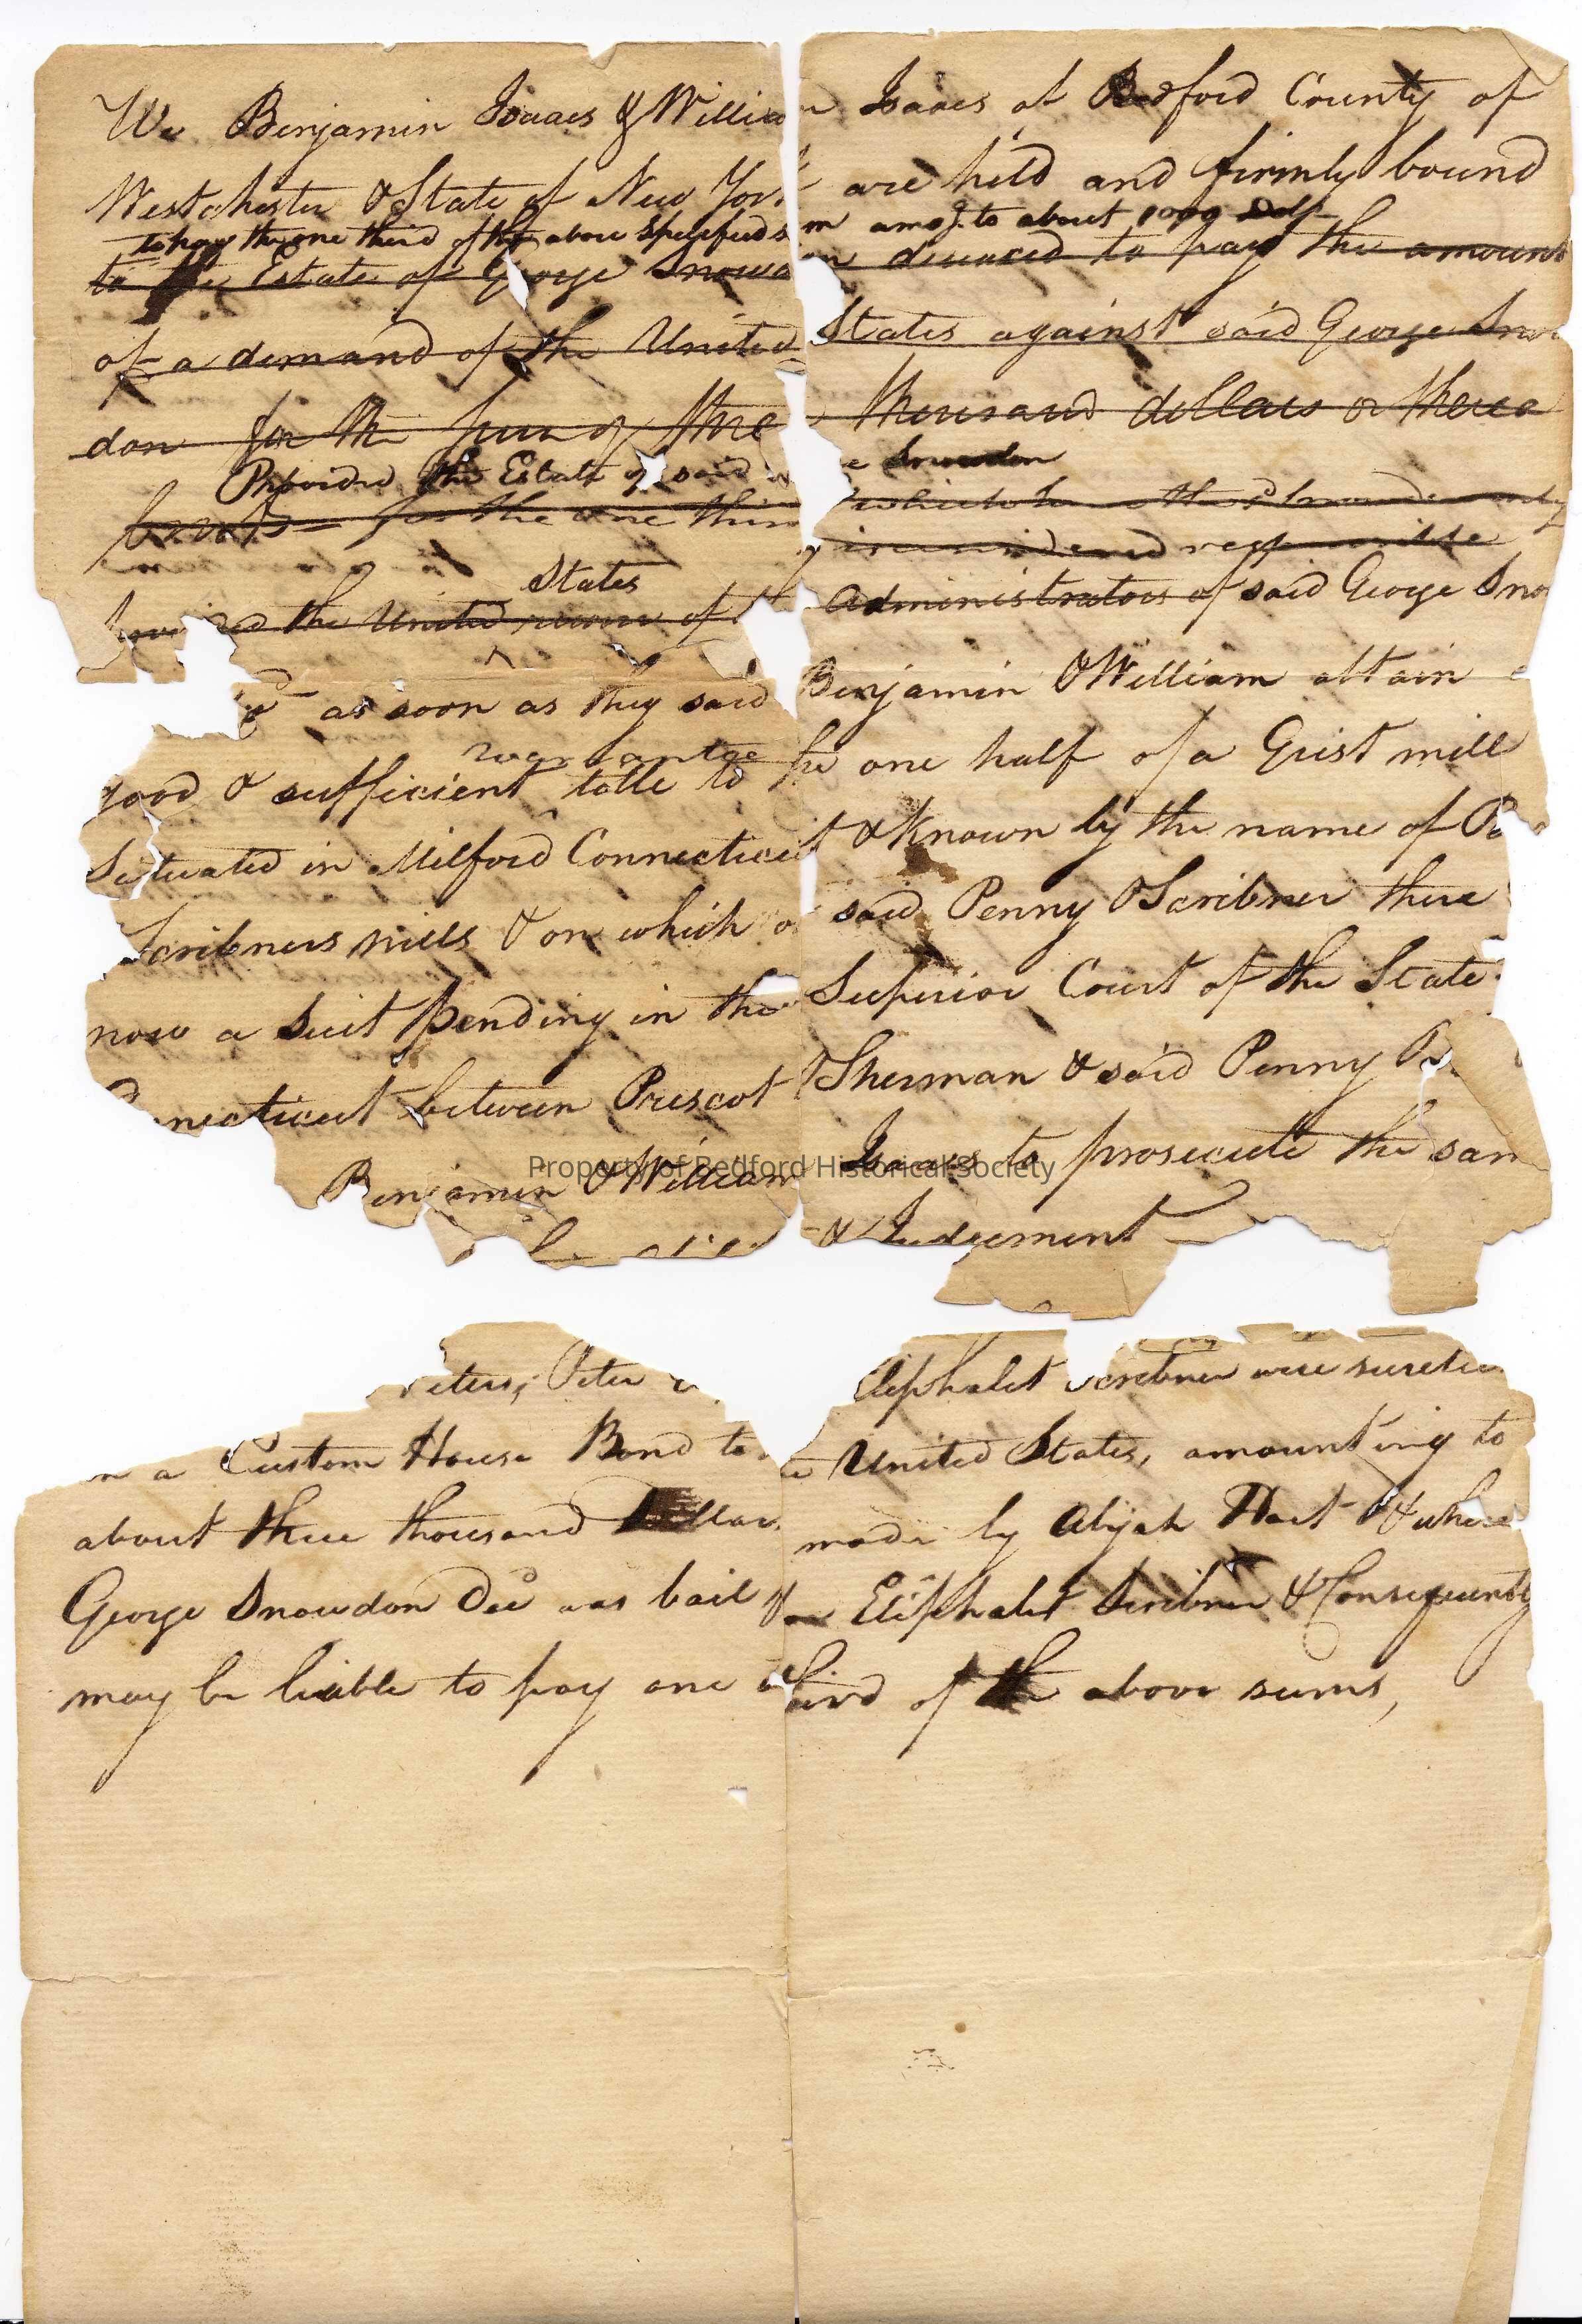 We Benjamin Isaacs & William Isaacs of Bedford County of
Westchester & State of New York are held and firmly bound
to pay the one third of the above specified sum amog. to about 1000 Doll
to the Estate of George Snowdon deceaced to pay the amount
of a demand of the United States against said George Snow
don for the sum of three thousand dollars or therea
Provided the Estate of said Snowdon
bouts for the one third
States
the United of the Administrators of said George Sno
as soon as they said Benjamin & William attain
warrantee
good & sufficient title to the one half of a Grist mill
Situated in Milford Connecticut & known by the name of
Scribners mills & on which said Penny & Scribner there
now a suit pending in the Superior Court of the State
necticut between Prescot Sherman & said Penny
Benjamin & William Isaacs to prosecute the sam
& Judgement
Peter Eliphalet Scribner were sureties
on a Custom House Bond to the United States, amounting to
about three thousand Dollars made by Abijah Hart & where
George Snowdon Decd was bail for Eliphalet Scribner & Consequently
may be liable to pay one third of the above sums,
Property of Bedford Historical Society